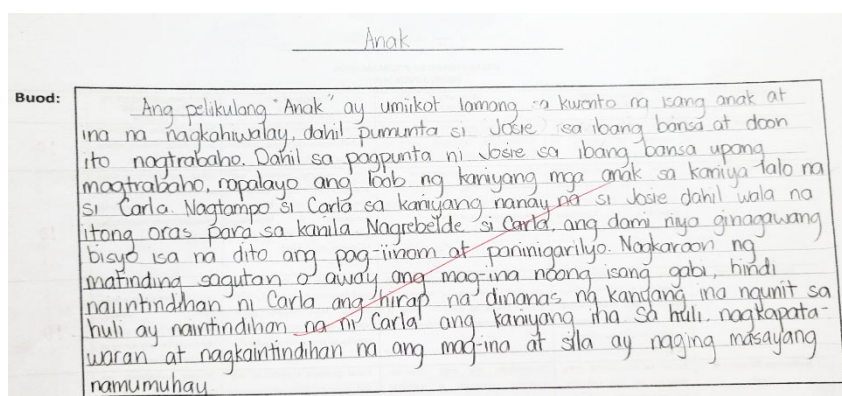 Anak
Buod:
Ang pelikulang "Anak" ay umiikot lamang sa kwento ng isang anak at
ina na nagkahiwalay, dahil pumunta si Josie sa ibang bansa at doon
ito nagtrabaho. Dahil sa pagpunta ni Josie sa ibang bansa upang
magtrabaho, napalayo ang loob ng kaniyang mga anak sa kaniya lalo na
si Carla. Nagtampo si Carla sa kaniyang nanay na si Josie dahil wala na
itong oras para sa kanila Nagrebelde si Carla, ang dami niya ginagawang
bisyo isa na dito ang pag-iinom at paninigarilyo. Nagkaroon ng
matinding sagutan o away ang mag-ina noong isang gabi, hindi
naiintindihan ni Carla ang hirap na dinanas ng kandang ina ngunit sa
huli ay naintindihan na ni Carla ang kaniyang ina sa huli. nagkapata-
waran at nagkaintindihan na ang mag-ina at sila ay naging masayang
namumuhay